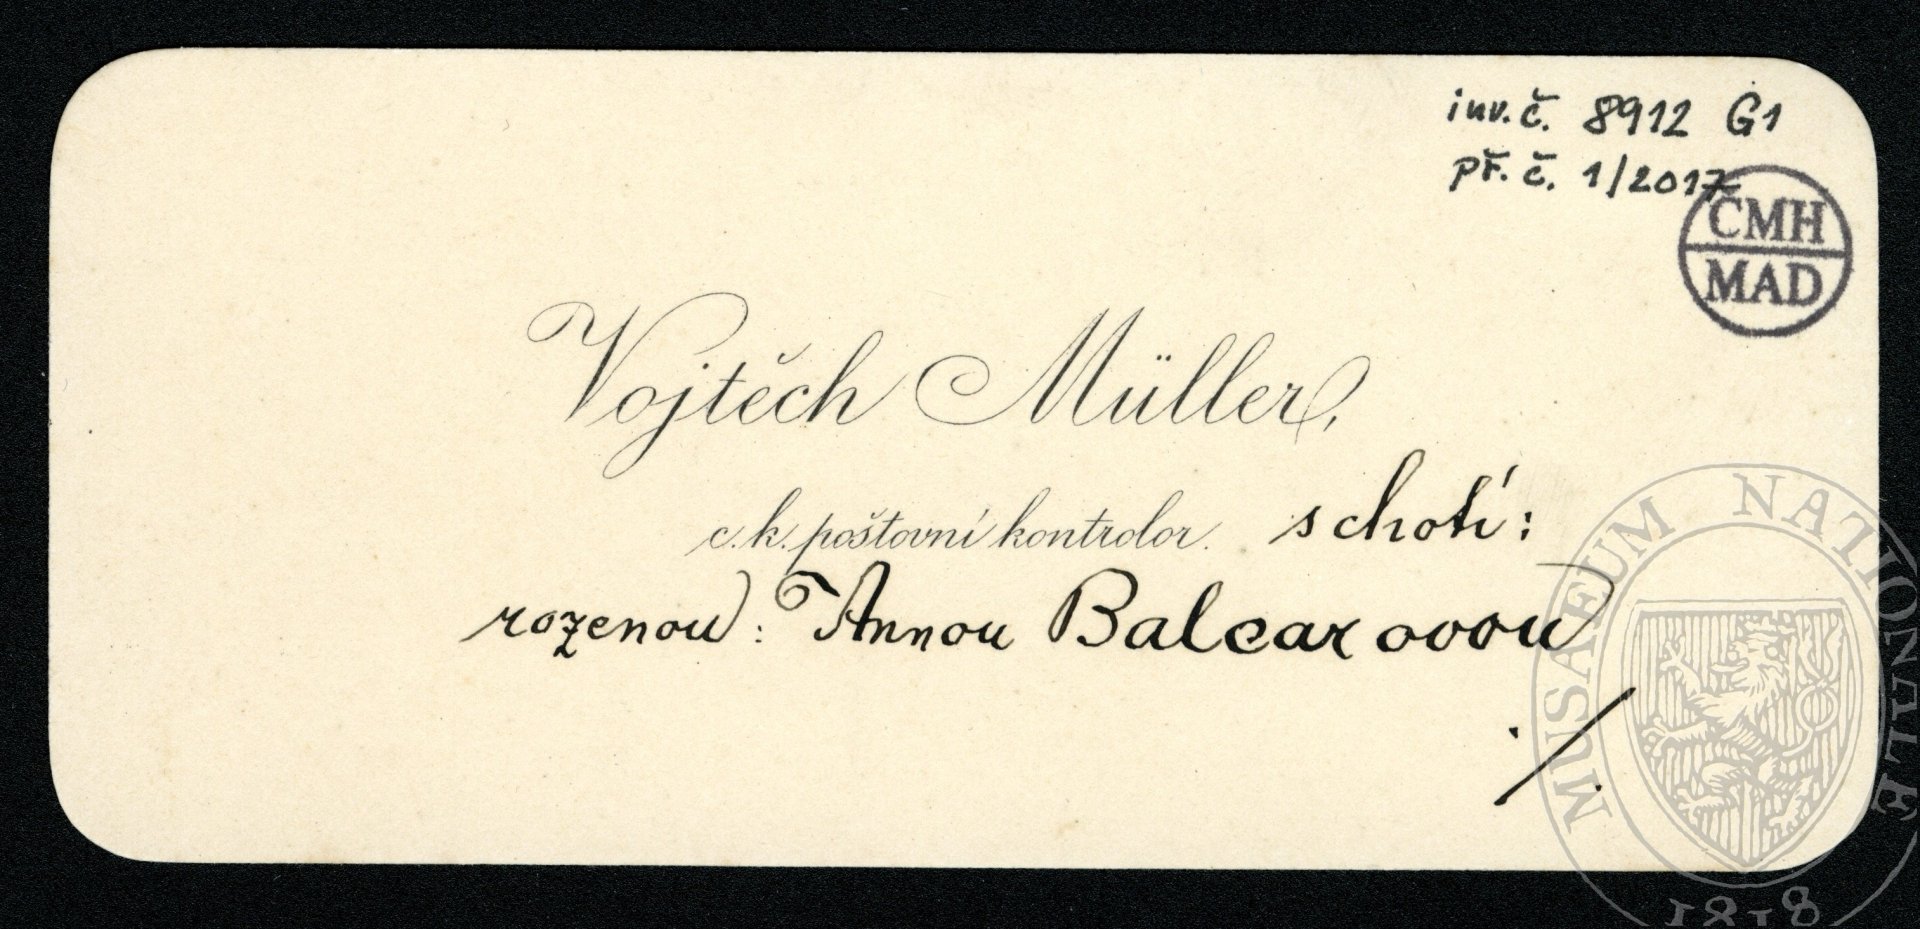 inv. č. 8912 G1
př. č. 1/2017
ČMH
MAD
Vojtěch Müller,
c. k. poštovní kontrolor. s chotí:
rozenou: Annou Balcarovou
./.
MUSAEUM NATIONALE
1818